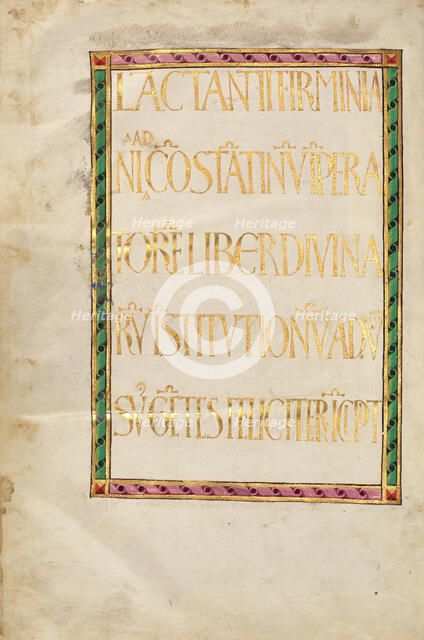 LACTANTII FIRMINIA
A AD
NI CŌSTĀTINV̄ ĪPERA
TORĒ LIBER DIVINA
RV̄ ĪSTITVTIONV̄ ADV̄
SV̓ GĒTES FELICITER ĪCIPT
Heritage Heritage
Heritage Heritage Heritage
Heritage Heritage
©